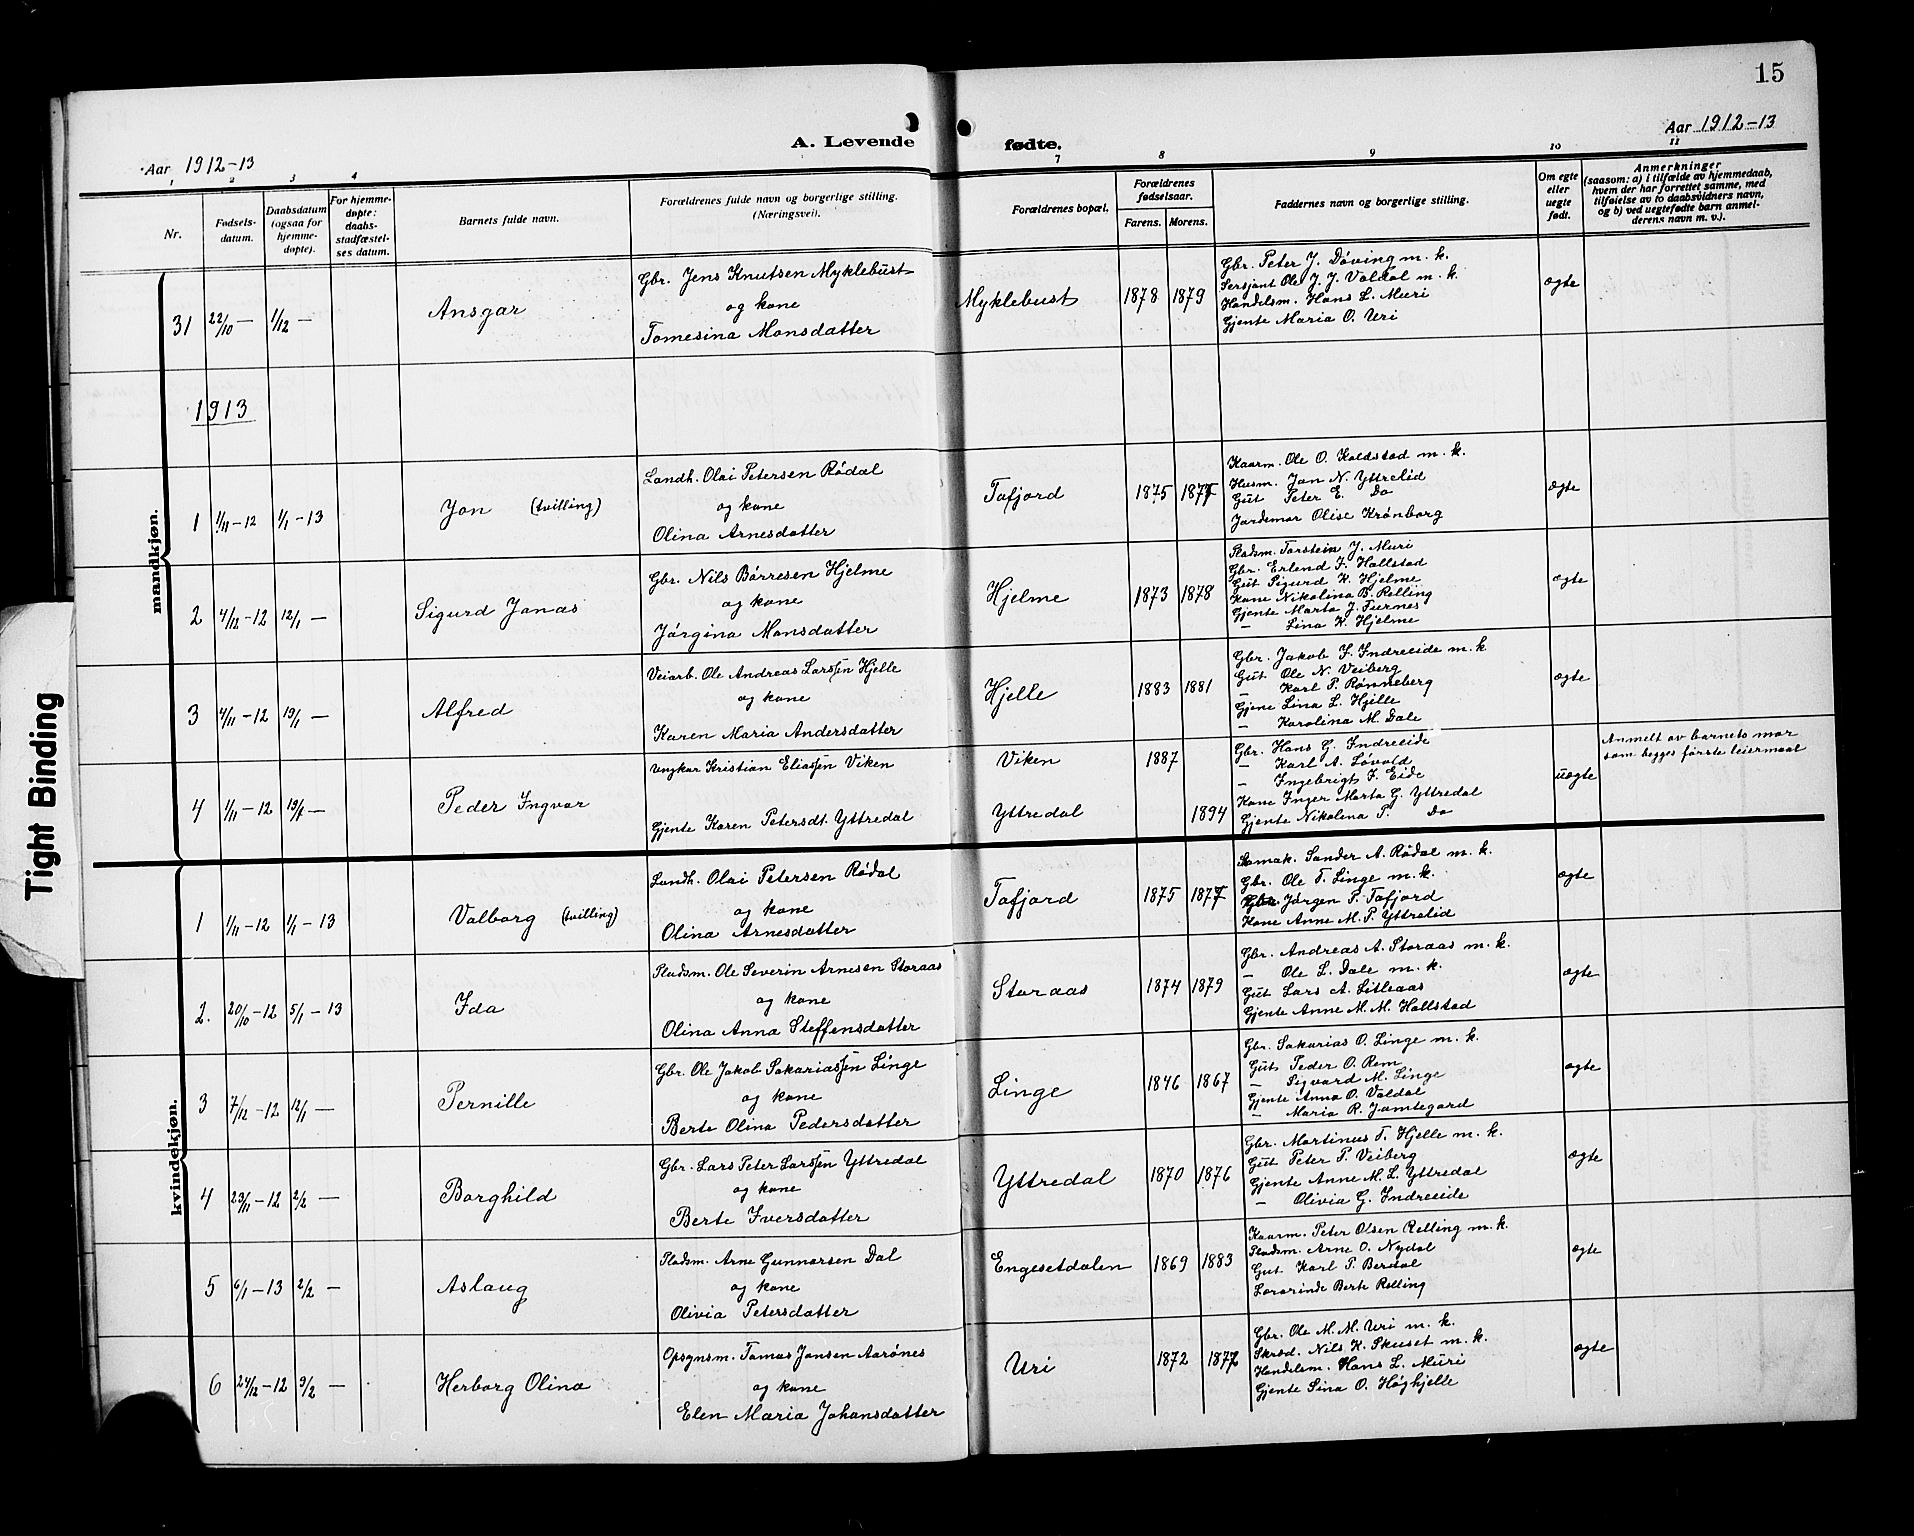 15
Aar 1912-13
A. Levende
fødte.
Aar 1912-13
1 2 3 4 7 8 9 10 11
Nr.
Fødsels-
datum.
Daabsdatum
(ogsaa for
hjemme-
døpte).
For hjemme-
døpte:
daabs-
stadfæstel-
ses datum.
Barnets fulde navn.
Forældrenes fulde navn og borgerlige stilling.
(Næringsvei).
Forældrenes bopæl.
Forældrenes
fødselsaar.
Farens. Morens.
Faddernes navn og borgerlige stilling.
Om egte
eller
uegte
født.
Anmerkninger
(saasom: a) i tilfælde av hjemmedaab,
hvem der har forrettet samme, med
tilføielse av to daabsvidners navn,
og b) ved uegtefødte barn anmel-
derens navn m. v.).
mandkjøn.
31 22/10 — 1/12 — Ansgar
Gbr. Jens Knutsen Myklebust
og kone
Tomesina Monsdatter
Myklebust 1878 1879
Gbr. Peter J. Døving m. k.
Sersjant Ole J. J. Valdal m. k.
Handelsm. Hans L. Muri
Gjente Maria O. Uri
egte
1913
1 1/11-12 1/1-13 Jon (tvilling)
Landh. Olai Petersen Rødal
og kone
Olina Arnesdatter
Tafjord 1875 1877
Kaarm. Ole O. Kaldstad m. k.
Husm. Jon N. Yttrelid
Gut Peter E. Do
Jordemor Olise Krønborg
egte
2 4/12-12 12/1 — Sigurd Jonas
Gbr. Nils Børresen Hjelme
og kone
Jørgina Monsdatter
Hjelme 1873 1878
Pladsm. Torstein J. Muri
Gbr. Erlend J. Hallstad
Gut Sigurd K. Hjelme
Kone Nikolina B. Relling
Gjente Marta J. Furnes
— Lina K. Hjelme
egte
3 4/11-12 19/1 — Alfred
Veiarb. Ole Andreas Larssen Hjelle
og kone
Karen Maria Andersdatter
Hjelle 1883 1881
Gbr. Jakob I. Indreeide m. k
Gut Ole N. Veiberg
— Karl P. Rønneberg
Gjene Lina L. Hjelle
— Karolina M. Dale
egte
4 1/11-12 19/1 — Peder Ingvar
Ungkar Kristian Eliassen Viken
Gjente Karen Petersdt. Yttredal
Viken 1887
Yttredal 1894
Gbr. Hans G. Indreeide
— Karl A. Løvold
— Ingebrigt J. Eide
Kone Inger Marta G. Yttredal
Gjente Nikolina P. Do
uegte
Anmelt av barnets mor
som begges første leiermaal
kvindekjøn.
1 1/11-12 1/1-13 Valborg (tvilling)
Landh. Olai Petersen Rødal
og kone
Olina Arnesdatter
Tafjord 1875 1877
Sander A. Rødal m. k.
Gbr. Ole T. Linge m. k.
Jørgen P. Tafjord
Kone Anne M. P. Yttrelid
egte
2. 20/10-12 5/1-13 Ida
Pladsm. Ole Severin Arnesen Storaas
og kone
Olina Anna Steffensdatter
Storaas 1874 1879
Gbr. Andreas A. Storaas m. k.
— Ole L. Dale m. k.
Gut Lars A. Litleaas
Gjente Anne M. M. Hallstad
egte
3 7/12-12 12/1 — Pernille
Gbr. Ole Jakob Sakariassen Linge
og kone
Berte Olina Pedersdatter
Linge 1846 1867
Gbr. Sakarias O. Linge m. k.
Gut Peder O. Rem
— Sigvard M. Linge
Gjente Anna O. Valdal
— Maria R. Jamtegard
egte
4 23/11-12 2/2 — Borghild
Gbr. Lars Peter Larssen Yttredal
og kone
Berte Iversdatter
Yttredal 1870 1876
Gbr. Martinus T. Hjelle m. k.
Gut Peter P. Veiberg
Gjente Anne M. L. Yttredal
— Olivia G. Indreeide
egte
5 6/1-13 2/2 — Aslaug
Pladsm. Arne Gunnarsen Dal
og kone
Olivia Petersdatter
Engesetdalen 1869 1883
Kaarm. Peter Olsen Relling m. k.
Pladsm. Arne O. Nydal
Gut Karl P. Berdal
Lærerinde Berte Relling
egte
6 24/12-12 9/2 — Herborg Olina
Opsynsm. Tomas Jonsen Aarønes
og kone
Elen Maria Johansdatter
Uri 1872 1872
Gbr. Ole M. M. Uri m. k.
Skræd. Nils K. Skuset m. k.
Handelsm. Hans L. Muri
Gjente Sina O. Høghjelle
egte
Tight Binding